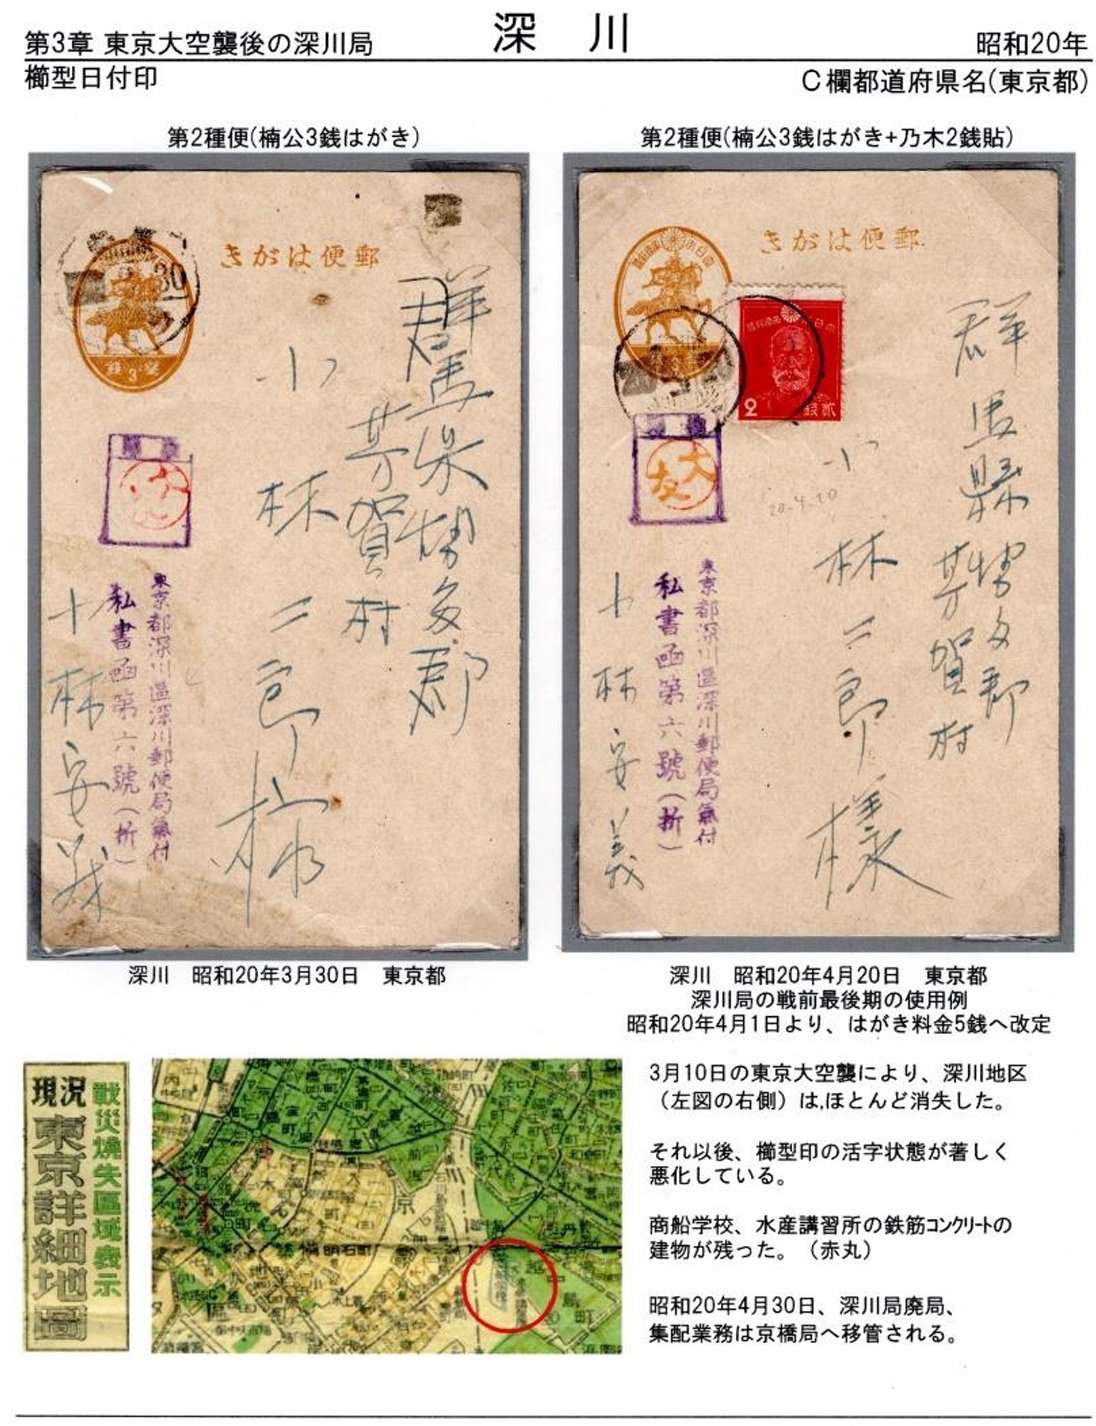 深 川
第3章 東京大空襲後の深川局
昭和20年
櫛型日付印
C欄都道府県名(東京都)
第2種便(楠公3銭はがき)
第2種便(楠公3銭はがき+乃木2銭貼)
きがは便郵
30
小林二郎様
群馬県勢多郡
芳賀村
東京都深川區深川郵便局氣付
私書函第六號(折)
小林安義
きがは便郵
2
銭貳
大友
20-4-20
群馬縣勢多郡
芳賀村
小林二郎様
東京都深川區深川郵便局氣付
私書函第六號(折)
小林安義
深川 昭和20年3月30日 東京都
深川 昭和20年4月20日 東京都
深川局の戦前最後期の使用例
昭和20年4月1日より、はがき料金5銭へ改定
戰災燒失區域表示
現況
東京詳細地圖
明石町
3月10日の東京大空襲により、深川地区
(左図の右側)は,ほとんど消失した。
それ以後、櫛型印の活字状態が著しく
悪化している。
商船学校、水産講習所の鉄筋コンクリートの
建物が残った。(赤丸)
昭和20年4月30日、深川局廃局、
集配業務は京橋局へ移管される。